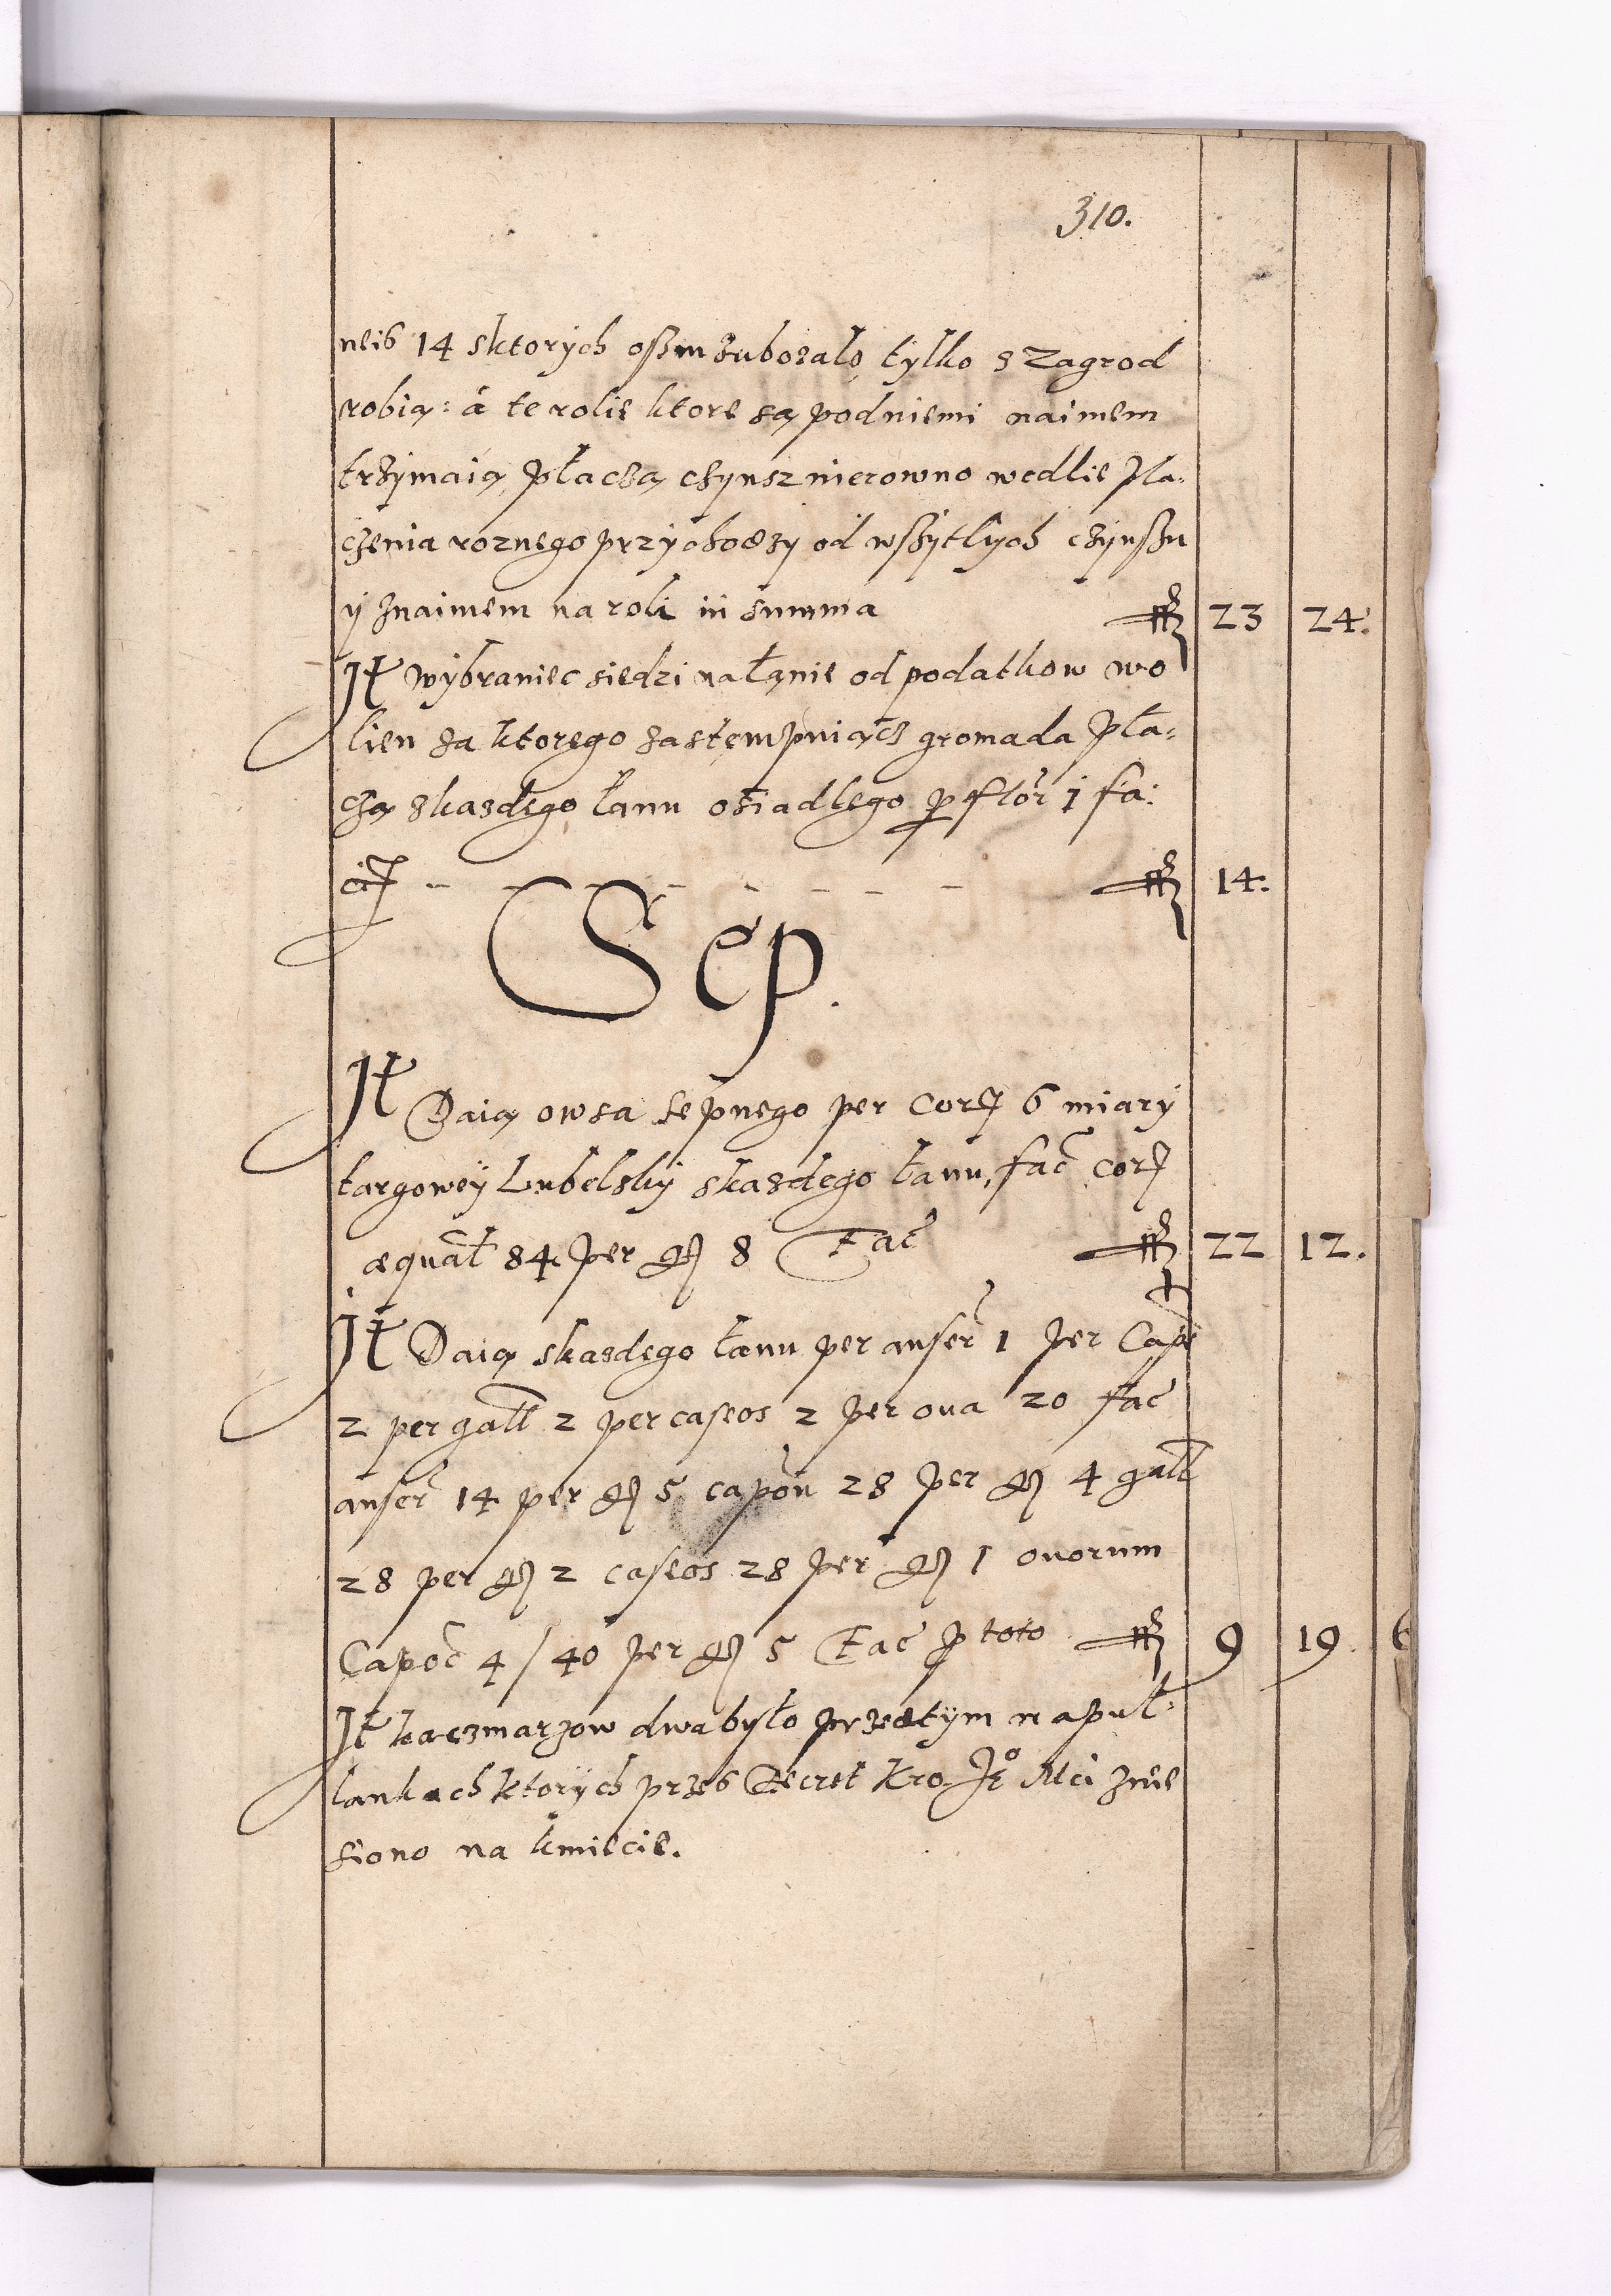 310.
neis 14 sktorych osm zubozało tylko s zagrod
robią: á te rolie ktore są podniemi naimem
trzymaią, płaczą czynsz nierowno wedlie pła-
czenia roznego przychodzy od wszytkych czynszu
y znaimem na roli in summa ff 23 24.
It wybraniec siedzi na łanie od podatkow wo
lien za ktorego zastempuiącz gromada pła-
czą zkazdego łanu osiadłego p flor 1 fa:
cit - - - - - - - - ff 14.
Sep.
It Daią owsa sepnego per cor 6 miary
targowey Lubelsky skazdego łanu, fac cor
æqual 84 per g 8 Fac ff 22 12.
It Daią skazdego łanu per anser 1 per Cap
2 per gall 2 per caseos 2 per oua 20 fac
anser 14 per g 5 capon 28 per g 4 gall
28 per g 2 caseos 28 per g 1 ouorum
Capoc 4/40 per g 5 Fac p toto ff 9 19 6
It kaczmarzow dwa było przedtym na puł-
lankach ktorych przes Decret Kro Je Mci znie
siono na kmiecie.